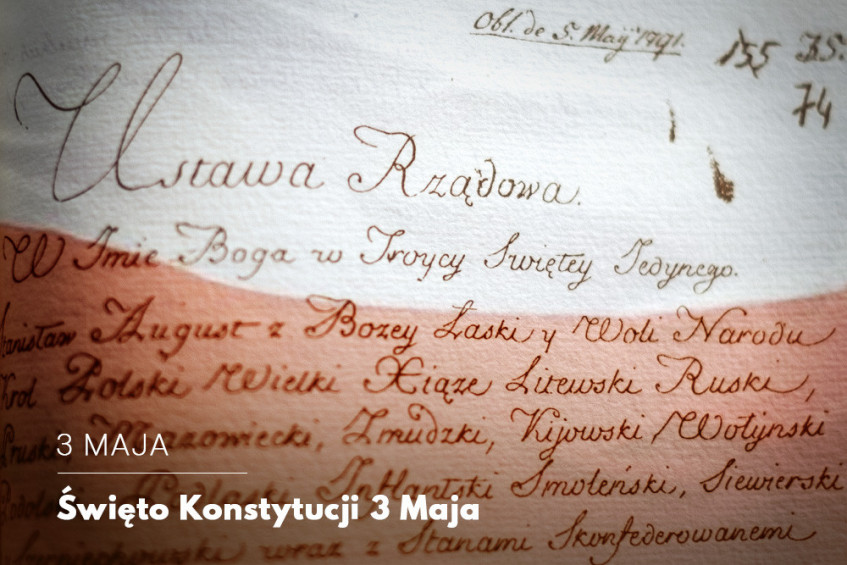 Obl. de 5. Maÿ 1791.
155 35.
74
Ustawa Rządowa.
W Imie Boga w Troycy Swiętey Jedynego.
Stanisław August z Bozey Łaski y Woli Narodu
Krol Polski Wielki Xiąze Litewski Ruski,
Pruski Mazowiecki, Zmudzki, Kijowski, Wołyński
Podlaski Inflantski Smoleński, Siewierski
wraz z Stanami Skonfederowanemi
3 MAJA
Święto Konstytucji 3 Maja